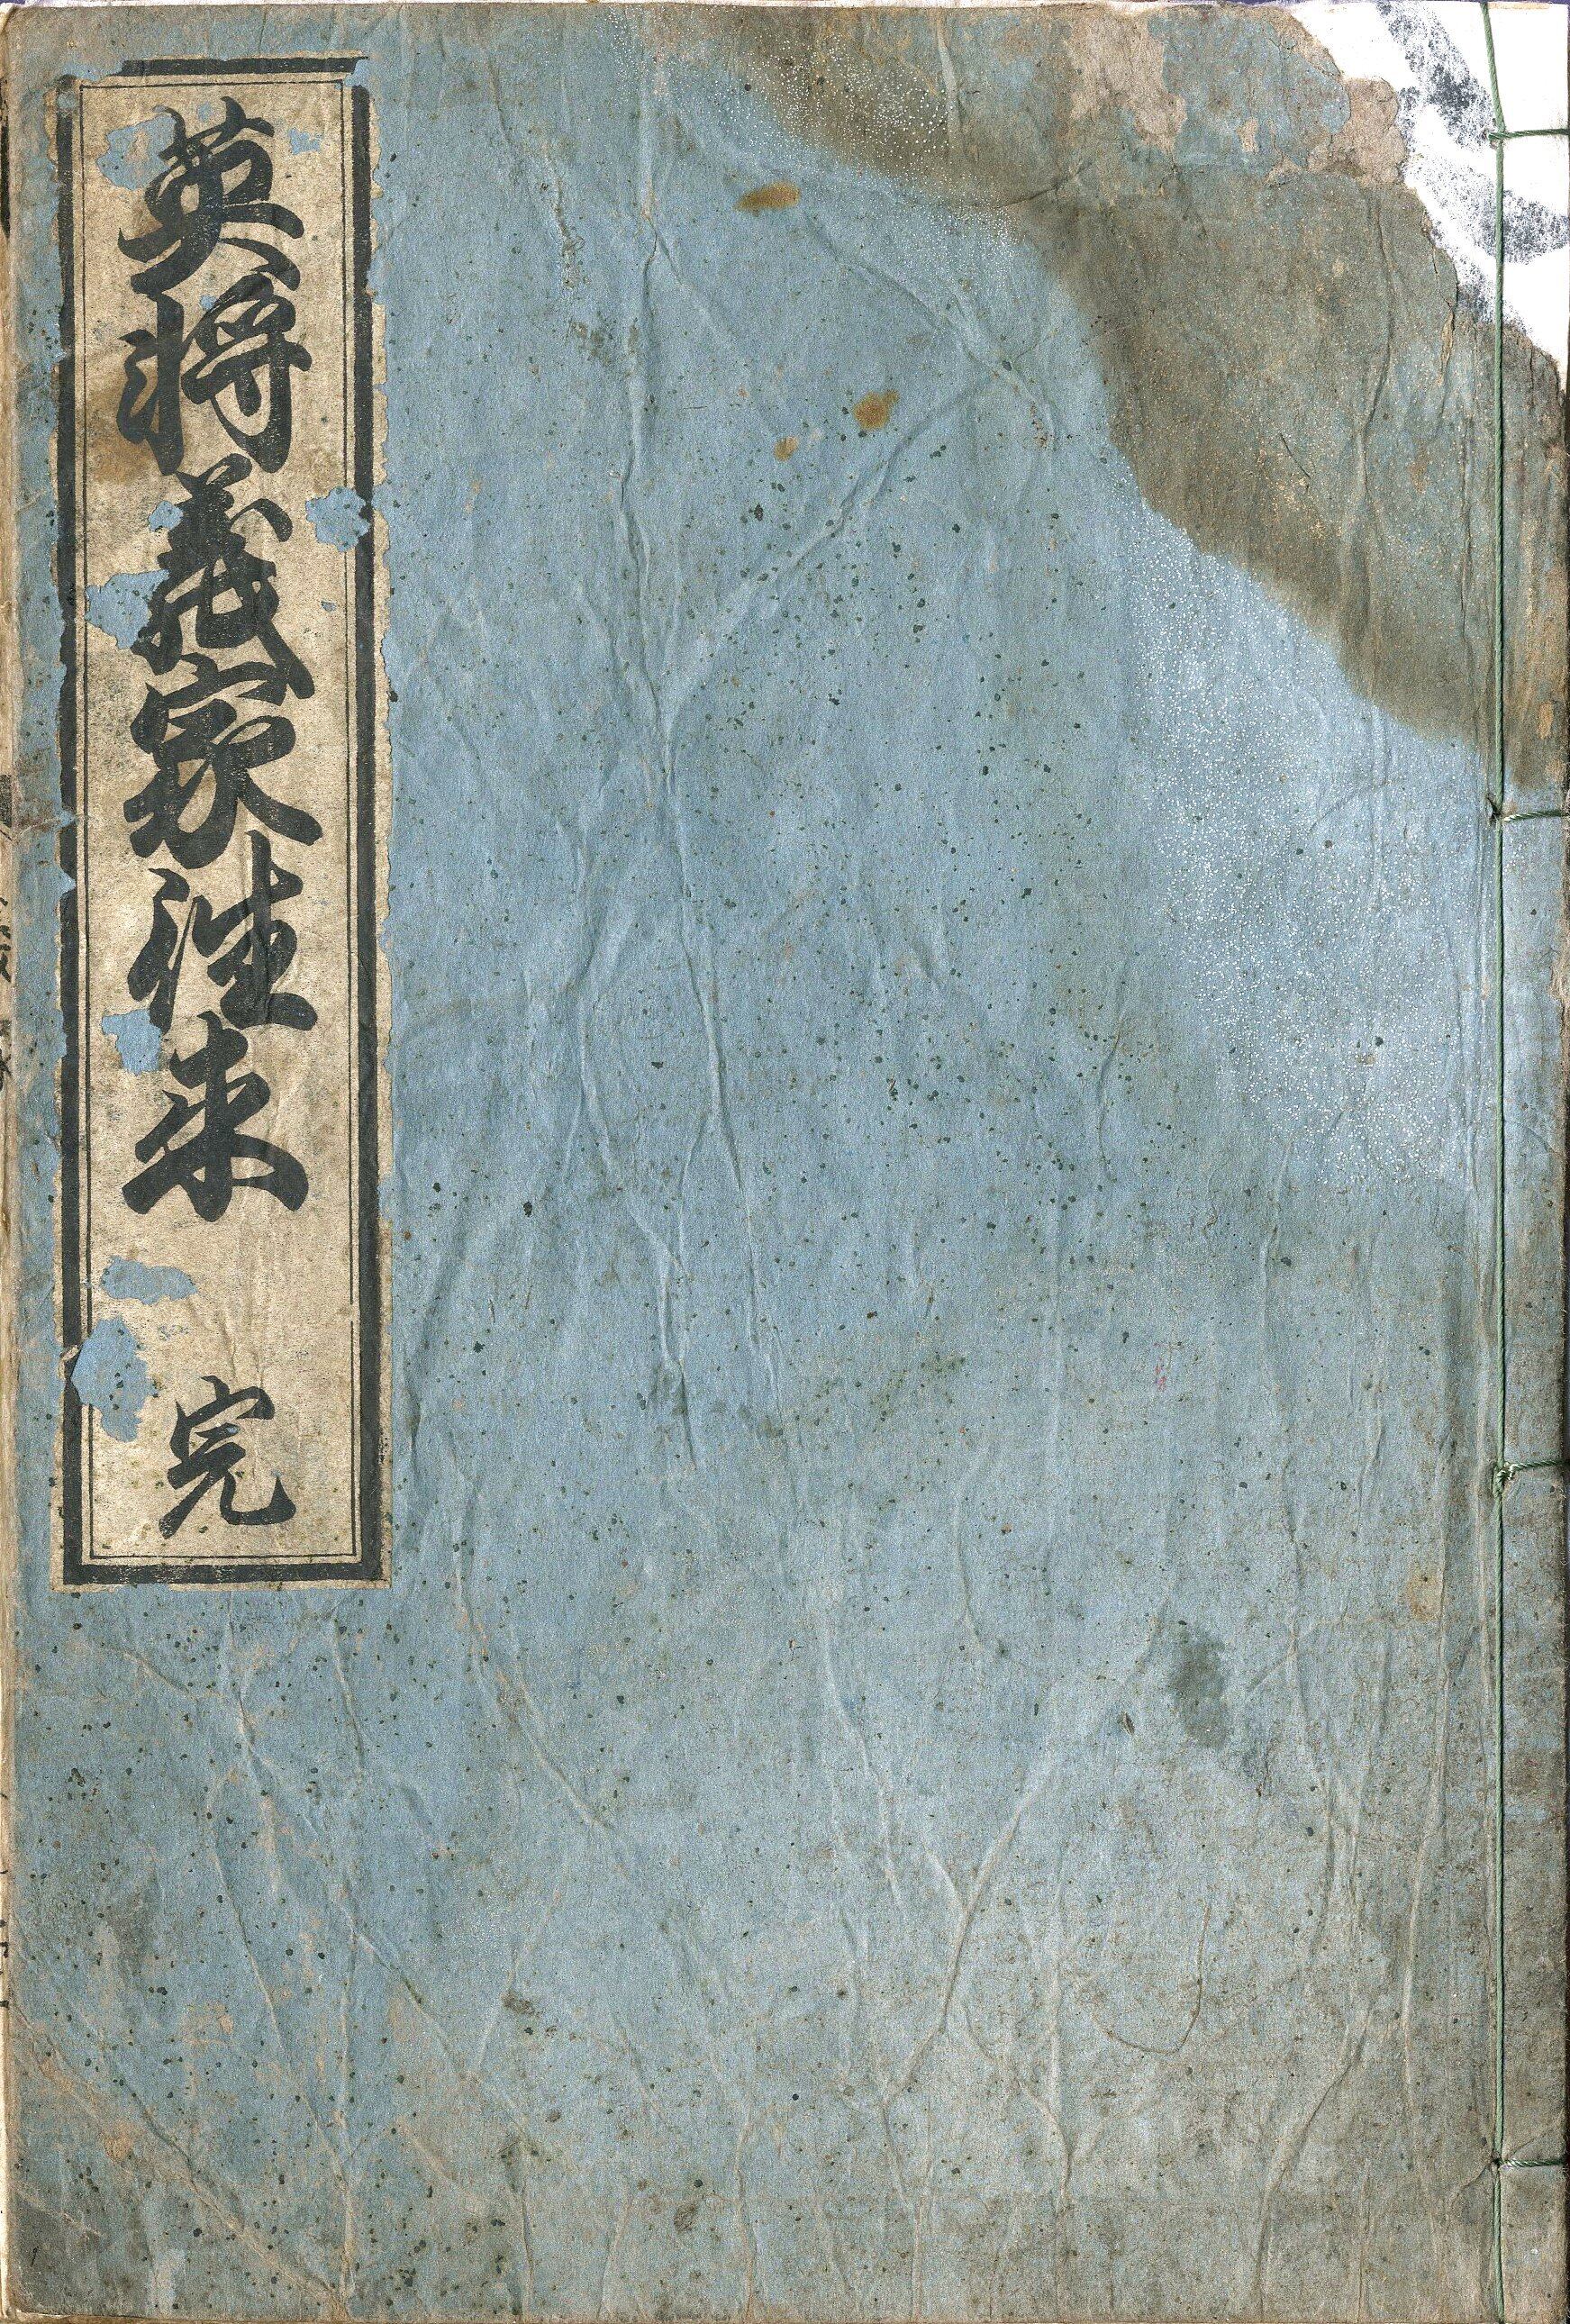 英將義家往来
完